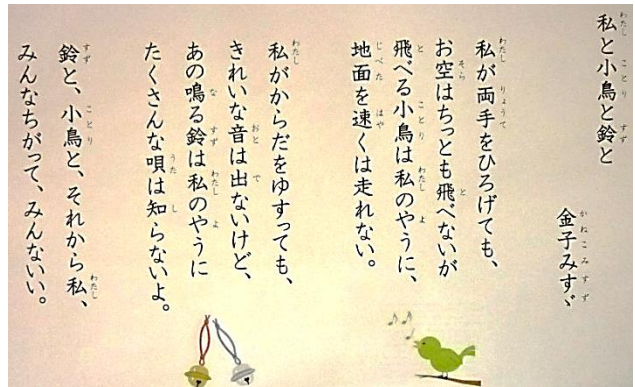 私と小鳥と鈴と
金子みすゞ
私が両手をひろげても、
お空はちっとも飛べないが
飛べる小鳥は私のやうに、
地面を速くは走れない。
私がからだをゆすっても、
きれいな音は出ないけど、
あの鳴る鈴は私のやうに
たくさんな唄は知らないよ。
鈴と、小鳥と、それから私、
みんなちがって、みんないい。